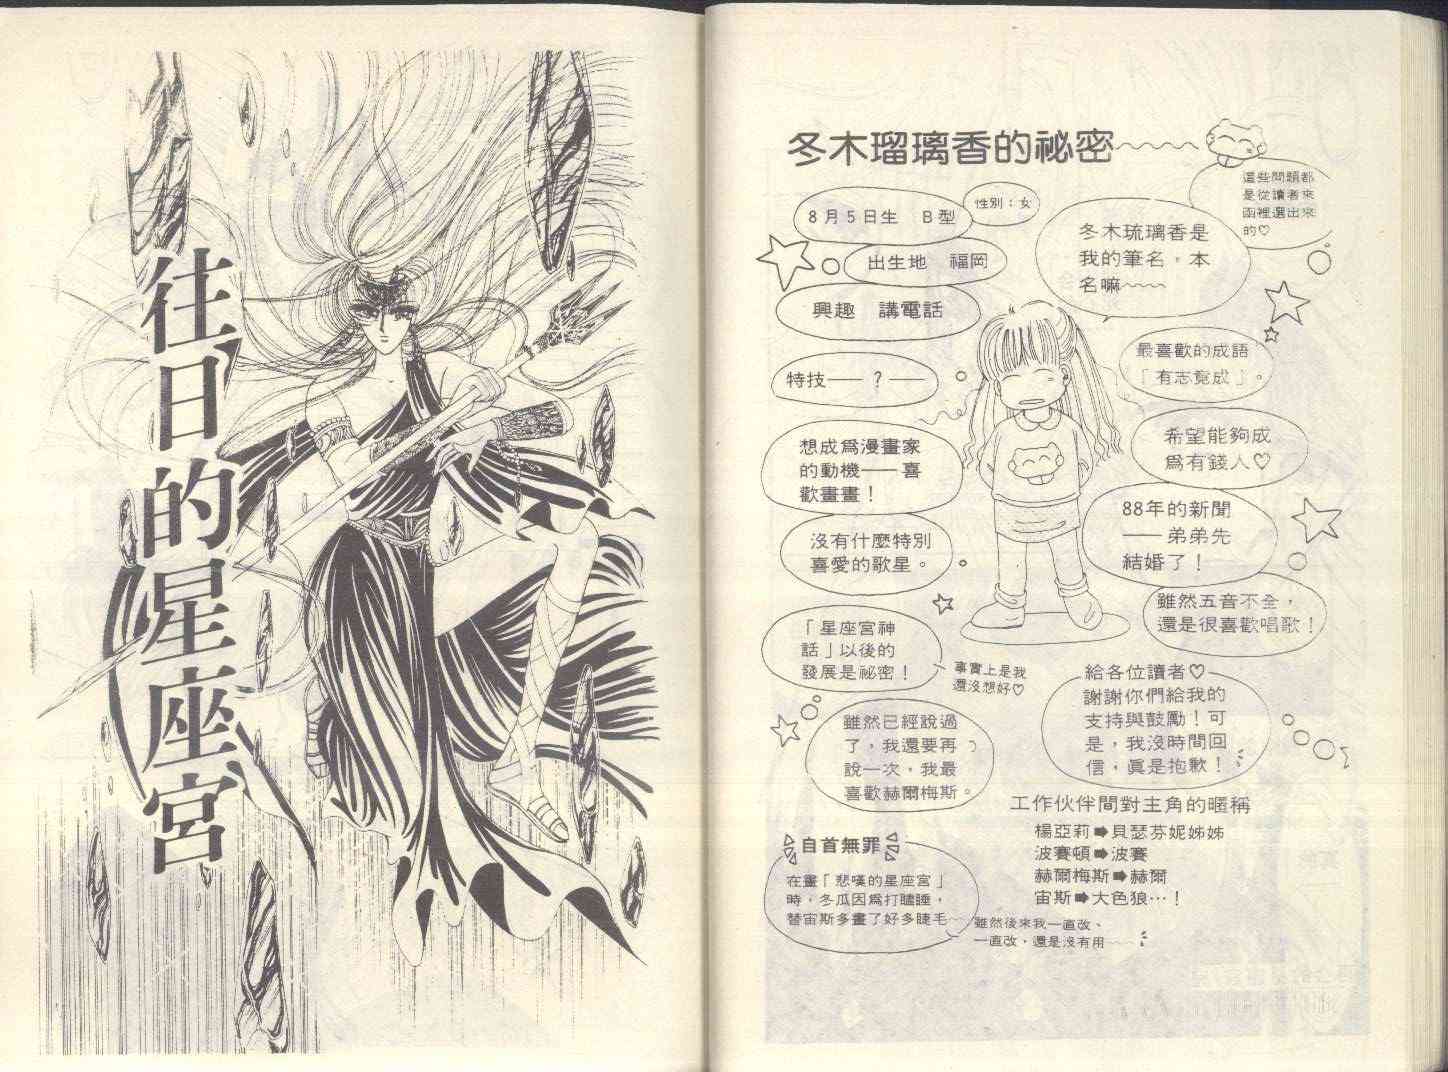 往日的星座宮
冬木瑠璃香的祕密
這些問題都
是從讀者來
函裡選出來
的♡
8月5日生 B型
性別：女
出生地 福岡
冬木琉璃香是
我的筆名，本
名嘛~~~
興趣 講電話
最喜歡的成語
「有志竟成」。
特技——？——
希望能夠成
爲有錢人♡
想成爲漫畫家
的動機——喜
歡畫畫！
88年的新聞
——弟弟先
結婚了！
沒有什麼特別
喜愛的歌星。
雖然五音不全，
還是很喜歡唱歌！
「星座宮神
話」以後的
發展是祕密！
事實上是我
還沒想好♡
給各位讀者♡
謝謝你們給我的
支持與鼓勵！可
是，我沒時間回
信，眞是抱歉！
雖然已經說過
了，我還要再
說一次，我最
喜歡赫爾梅斯。
工作伙伴間對主角的暱稱
楊亞莉➡貝瑟芬妮姊姊
波賽頓➡波賽
赫爾梅斯➡赫爾
宙斯➡大色狼…！
自首無罪
在畫「悲嘆的星座宮」
時，冬瓜因爲打瞌睡，
替宙斯多畫了好多睫毛~~
雖然後來我一直改、
一直改，還是沒有用~~~